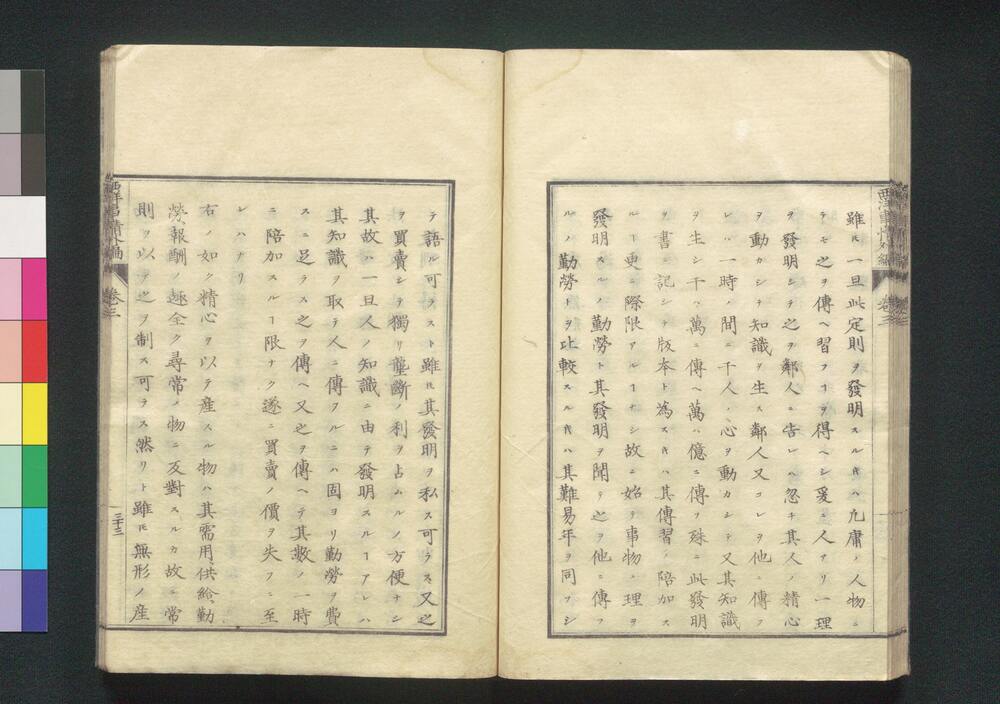 雖𪜈一旦此定則ヲ發明スル𪜈ハ凡庸ノ人物ニ
テモ之ヲ傳ヘ習フヿヲ得ヘシ爰ニ人アリ一理
ヲ發明シテ之ヲ鄰人ニ告レハ忽チ其人ノ精心
ヲ動カシテ知識ヲ生ス鄰人又コレヲ他ニ傳フ
レハ一時ノ間ニ千人ノ心ヲ動カシテ又其知識
ヲ生シ千ハ萬ニ傳ヘ萬ハ億ニ傳ヲ殊ニ此發明
ヲ書ニ記シテ版本ト為スキハ其傳習ノ陪加ス
ルヿ更ニ際限アルヿナシ故ニ始テ事物ノ理ヲ
發明スルノ勤勞ト其發明ヲ聞テ之ヲ他ニ傳フ
ルノ勤勞トヲ比較スル𪜈ハ其難易年ヲ同フシ
テ語ル可ラスト雖𪜈其發明ヲ私ス可ラス又之
ヲ買賣シテ獨リ壟斷ノ利ヲ占ムルノ方便ナシ
其故ハ一旦人ノ知識ニ由テ發明スルヿアレハ
其知識ヲ取テ人ニ傳フルニハ固ヨリ勤勞ヲ費
スニ足ラス之ヲ傳ヘ又之ヲ傳ヘテ其数ノ一時
ニ陪加スルヿ限ナク遂ニ買賣ノ價ヲ失フニ至
レハナリ
右ノ如ク精心ヲ以テ産スル物ハ其需用供給勤
勞報酬ノ趣全ク尋常ノ物ニ反對スルカ故ニ常
則ヲ以テ之ヲ制ス可ラス然リト雖𪜈無形ノ産
卷三
三十三